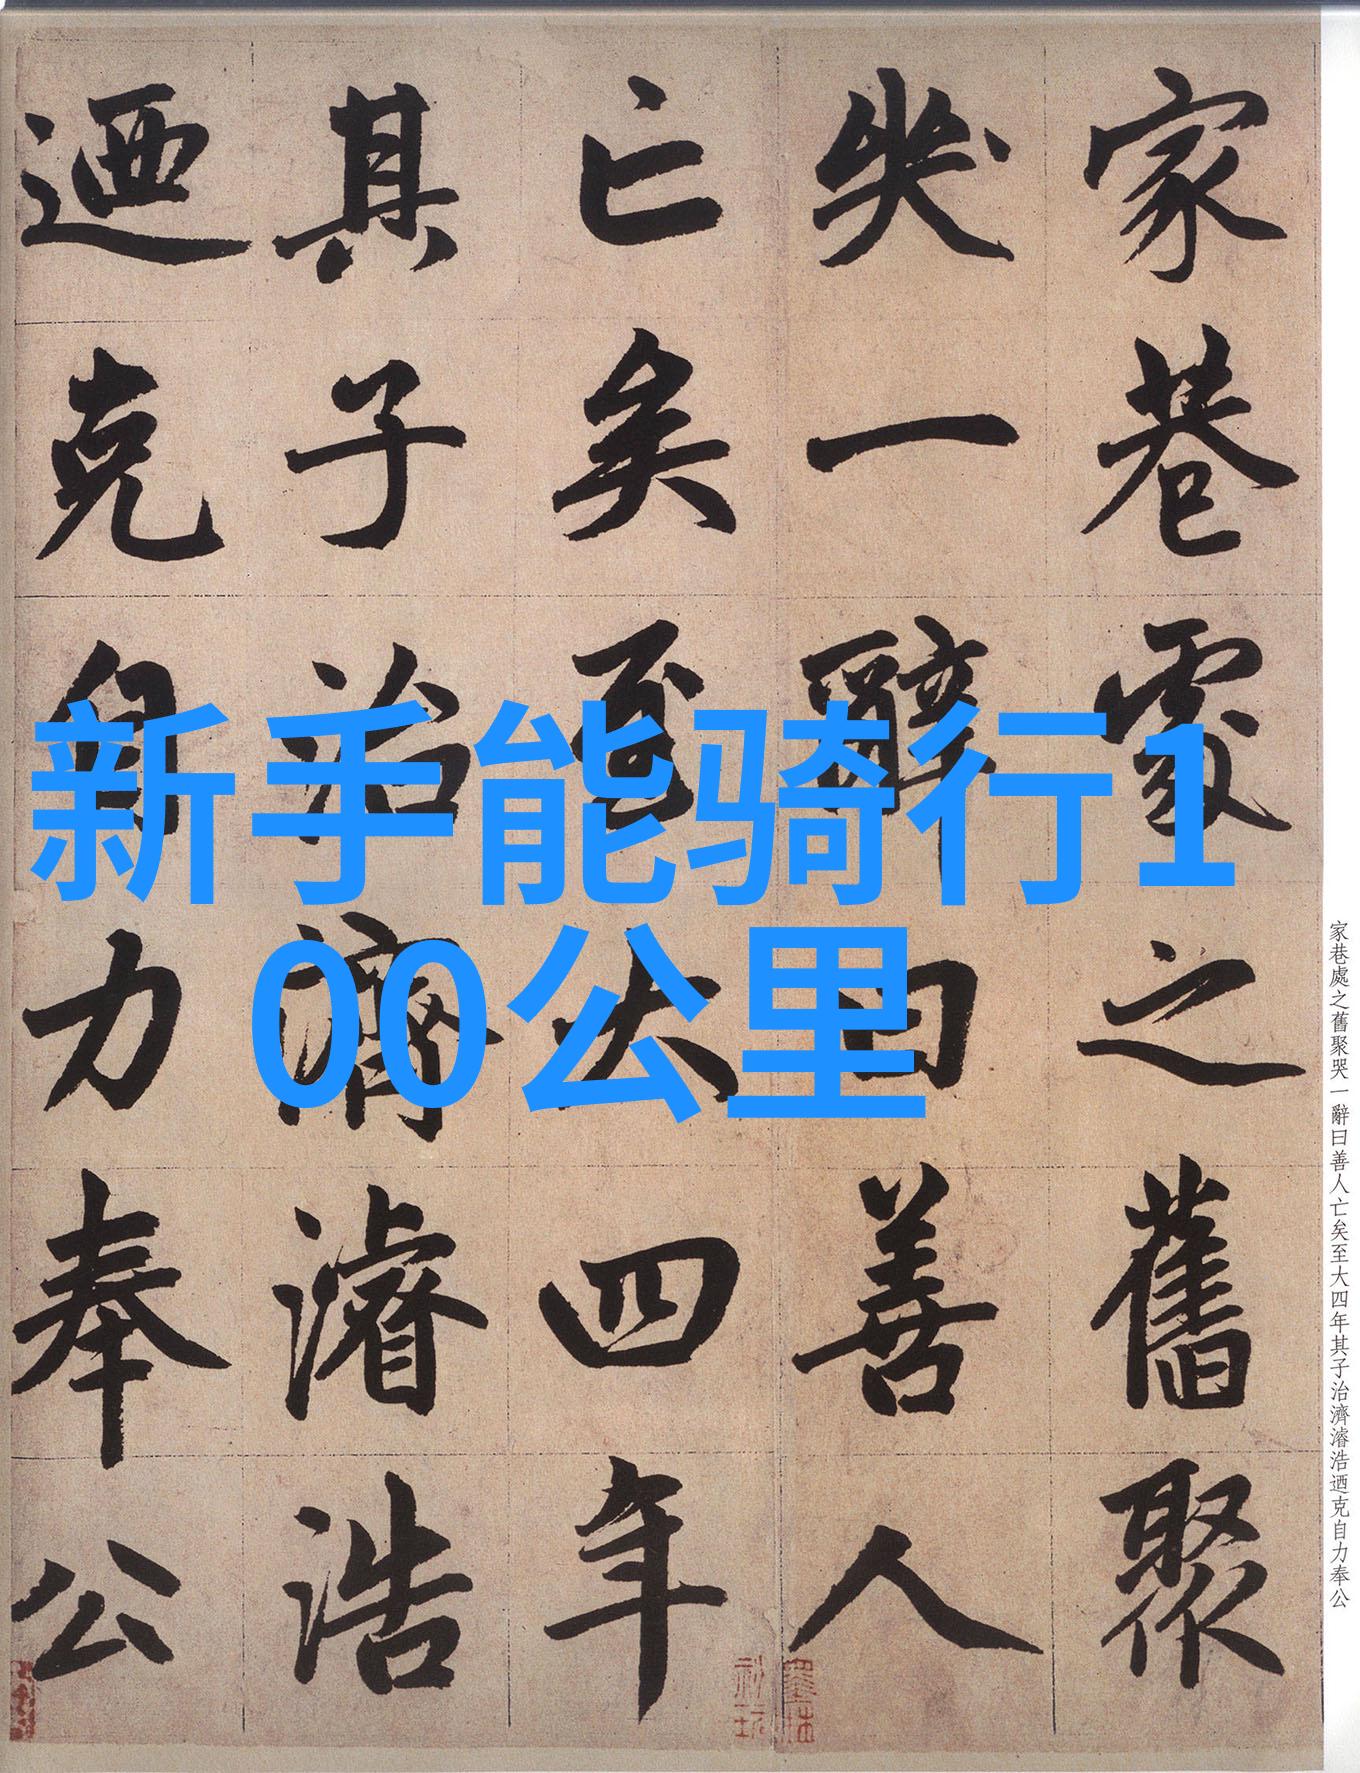 家巷處之舊聚
哭一辭曰善人
亡矣至大四年
其子治濟濬浩
迺克自力奉公
新手能骑行1
00公里
家巷處之舊聚哭一辭曰善人亡矣至大四年其子治濟濬浩迺克自力奉公